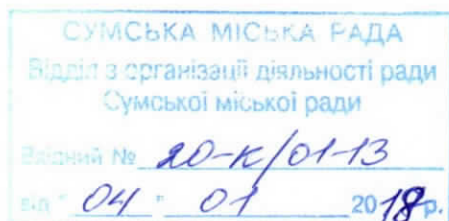 СУМСЬКА МІСЬКА РАДА
Відділ з організації діяльності ради
Сумської міської ради
Вхідний № 20-К/01-13
від " 04 " 01 2018р.